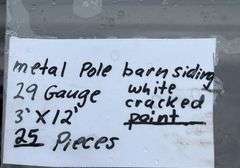 metal Pole barn siding
29 Gauge white
3' X 12' cracked
25 Pieces paint